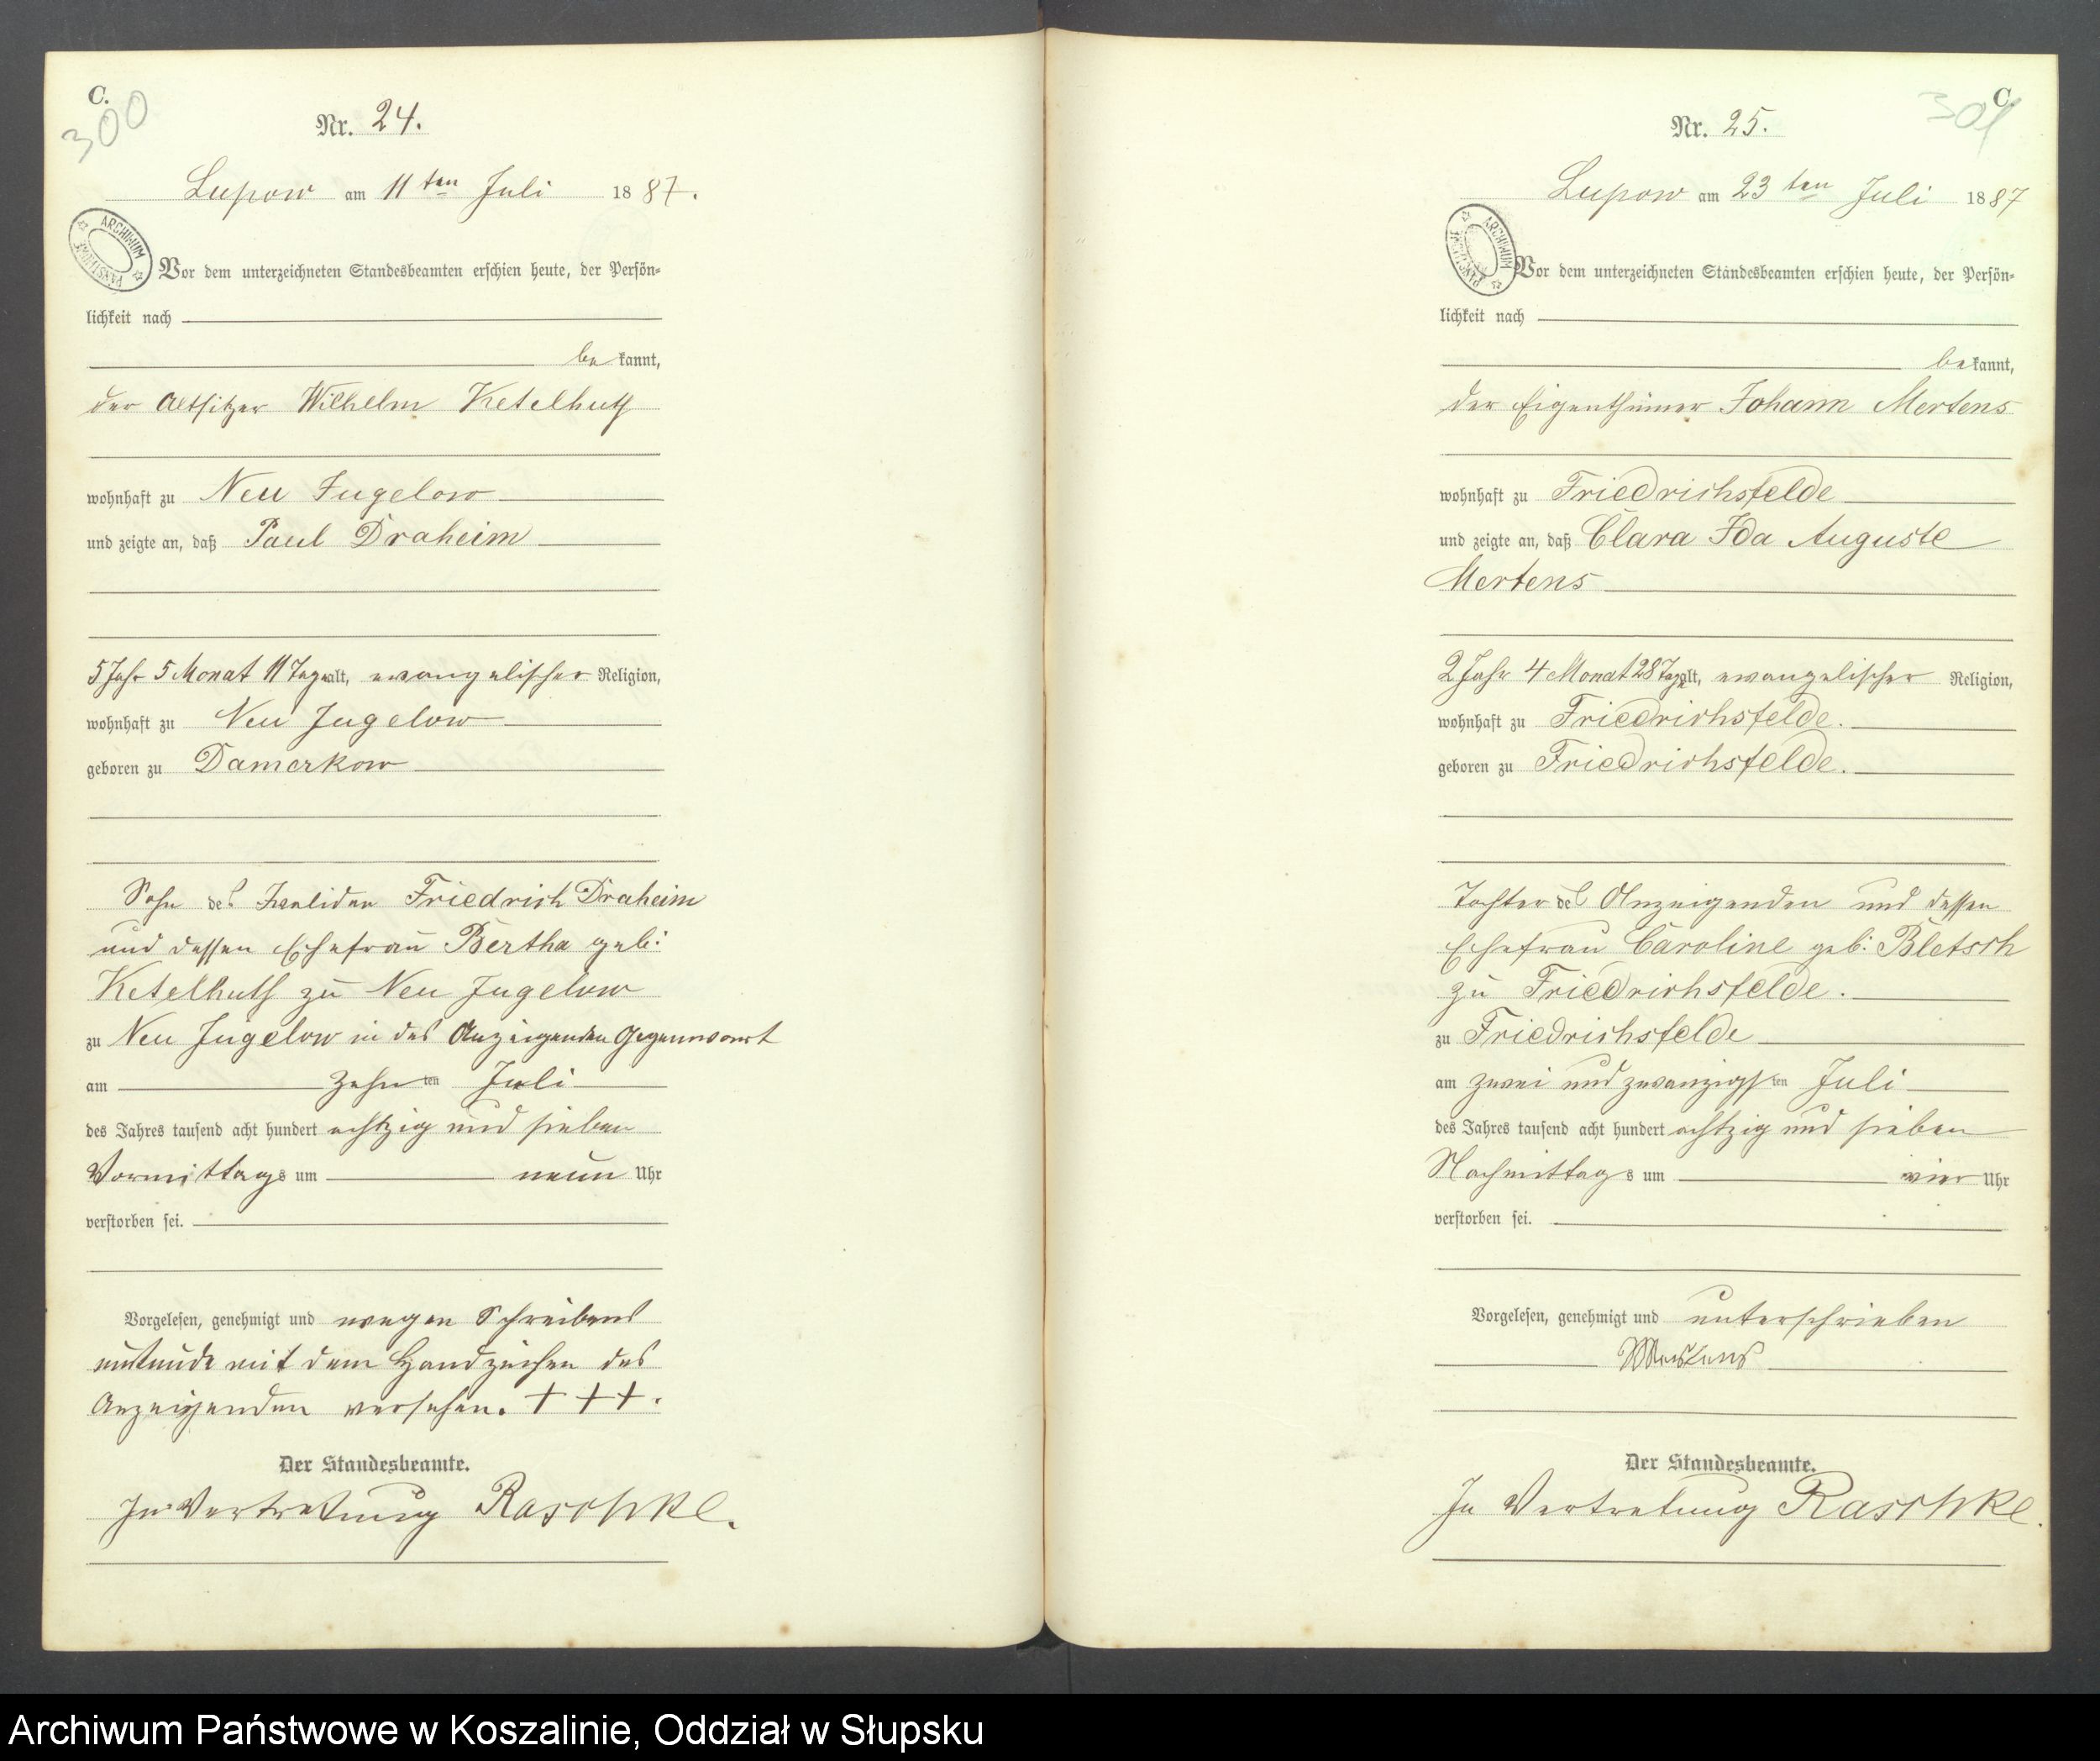 C.
300
Nr. 24.
Lupow am 11ten Juli 1887.
ARCHIWUM PAŃSTWOWE
Vor dem unterzeichneten Standesbeamten erschien heute, der Persön-
lichkeit nach
bekannt,
der Altsitzer Wilhelm Ketelhuth
wohnhaft zu Neu Jugelow
und zeigte an, daß Paul Draheim
5 Jahr 5 Monat 11 Tage alt, evangelischer Religion,
wohnhaft zu Neu Jugelow
geboren zu Damerkow
Sohn des Invaliden Friedrich Draheim
und dessen Ehefrau Bertha geb:
Ketelhuth zu Neu Jugelow
zu Neu Jugelow in des Anzeigenden Gegenwart
am zehnten Juli
des Jahres tausend acht hundert achtzig und sieben
Vormittags um neun Uhr
verstorben sei.
Vorgelesen, genehmigt und wegen Schreibens
unkunde mit dem Handzeichen des
Anzeigenden versehen. +++.
Der Standesbeamte.
In Vertretung Raschke.
C.
301
Nr. 25.
Lupow am 23ten Juli 1887
ARCHIWUM PAŃSTWOWE
Vor dem unterzeichneten Standesbeamten erschien heute, der Persön-
lichkeit nach
bekannt,
der Eigenthümer Johann Mertens
wohnhaft zu Friedrichsfelde
und zeigte an, daß Clara Ida Auguste
Mertens
2 Jahr 4 Monat 28 Tage alt, evangelischer Religion,
wohnhaft zu Friedrichsfelde.
geboren zu Friedrichsfelde.
Tochter des Anzeigenden und dessen
Ehefrau Caroline geb: Bletsch
zu Friedrichsfelde.
zu Friedrichsfelde
am zwei und zwanzigsten Juli
des Jahres tausend acht hundert achtzig und sieben
Nachmittags um vier Uhr
verstorben sei.
Vorgelesen, genehmigt und unterschrieben
Mertens
Der Standesbeamte.
In Vertretung Raschke.
Archiwum Państwowe w Koszalinie, Oddział w Słupsku